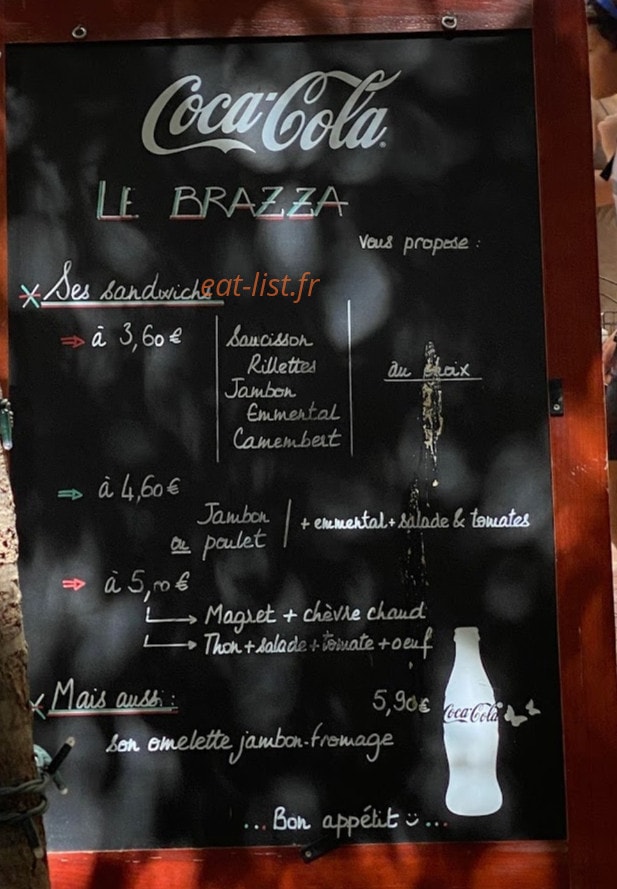 Coca-Cola
LE BRAZZA
Vous propose :
Ses sandwichs
eat-list.fr
⇒ à 3,60€
Saucisson
Rillettes
Jambon
Emmental
Camembert
au choix
⇒ à 4,60€
Jambon
ou poulet
+ emmental + salade & tomates
⇒ à 5, €
→ Magret + chèvre chaud
→ Thon + salade + tomate + oeuf
Mais aussi :
5,90€
Son omelette jambon-fromage
Coca-Cola
... Bon appétit ...